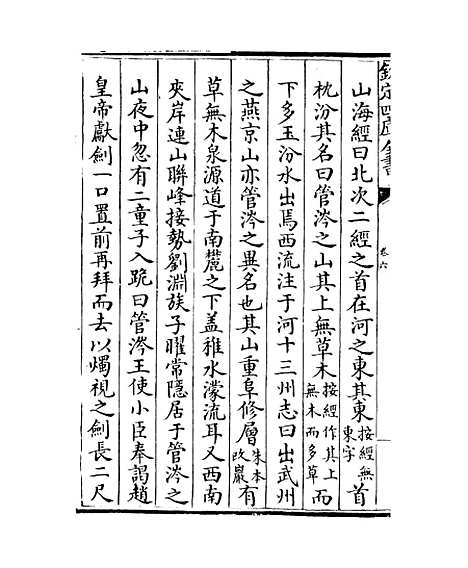 欽定四庫全書
卷六
山海經曰北次二經之首在河之東其東按經無東字首
枕汾其名曰管涔之山其上無草木按經作其上無木而多草而
下多玉汾水出焉西流注于河十三州志曰出武州
之燕京山亦管涔之異名也其山重阜修層朱本改巖有
草無木泉源導于南麓之下蓋稚水濛流耳又西南
夾岸連山聯峰接勢劉淵族子曜常隱居于管涔之
山夜中忽有二童子入跪曰管涔王使小臣奉謁趙
皇帝獻劍一口置前再拜而去以燭視之劍長二尺